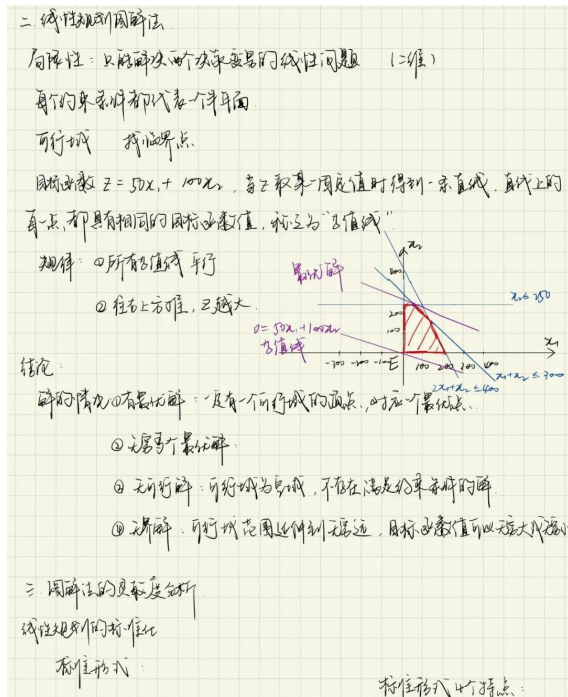 二. 线性规划图解法
局限性：只能解决两个决策变量的线性问题 （二维）
每个约束条件都代表一个半平面
可行域 找临界点
目标函数 Z = 50x₁ + 100x₂，当Z取某一固定值时得到一条直线，直线上的
每一点都具有相同的目标函数值，称之为“等值线”
规律：①所有等值线平行
②往右上方推，Z越大
x₂
最优解
400
x₂≤250
200
100
0=50x₁+100x₂
等值线
x₁
-300 -200 -100 E 100 200 300 400
x₁+x₂≤300
2x₁+x₂≤400
结论：
解的情况①有最优解：一定有一个可行域的顶点，对应一个最优点
②无穷多个最优解
③无可行解：可行域为空域，不存在满足约束条件的解
④无界解：可行域范围延伸到无穷远，目标函数值可以无穷大或无穷小
三. 图解法的灵敏度分析
线性规划的标准化
标准形式：
标准形式4个特点：